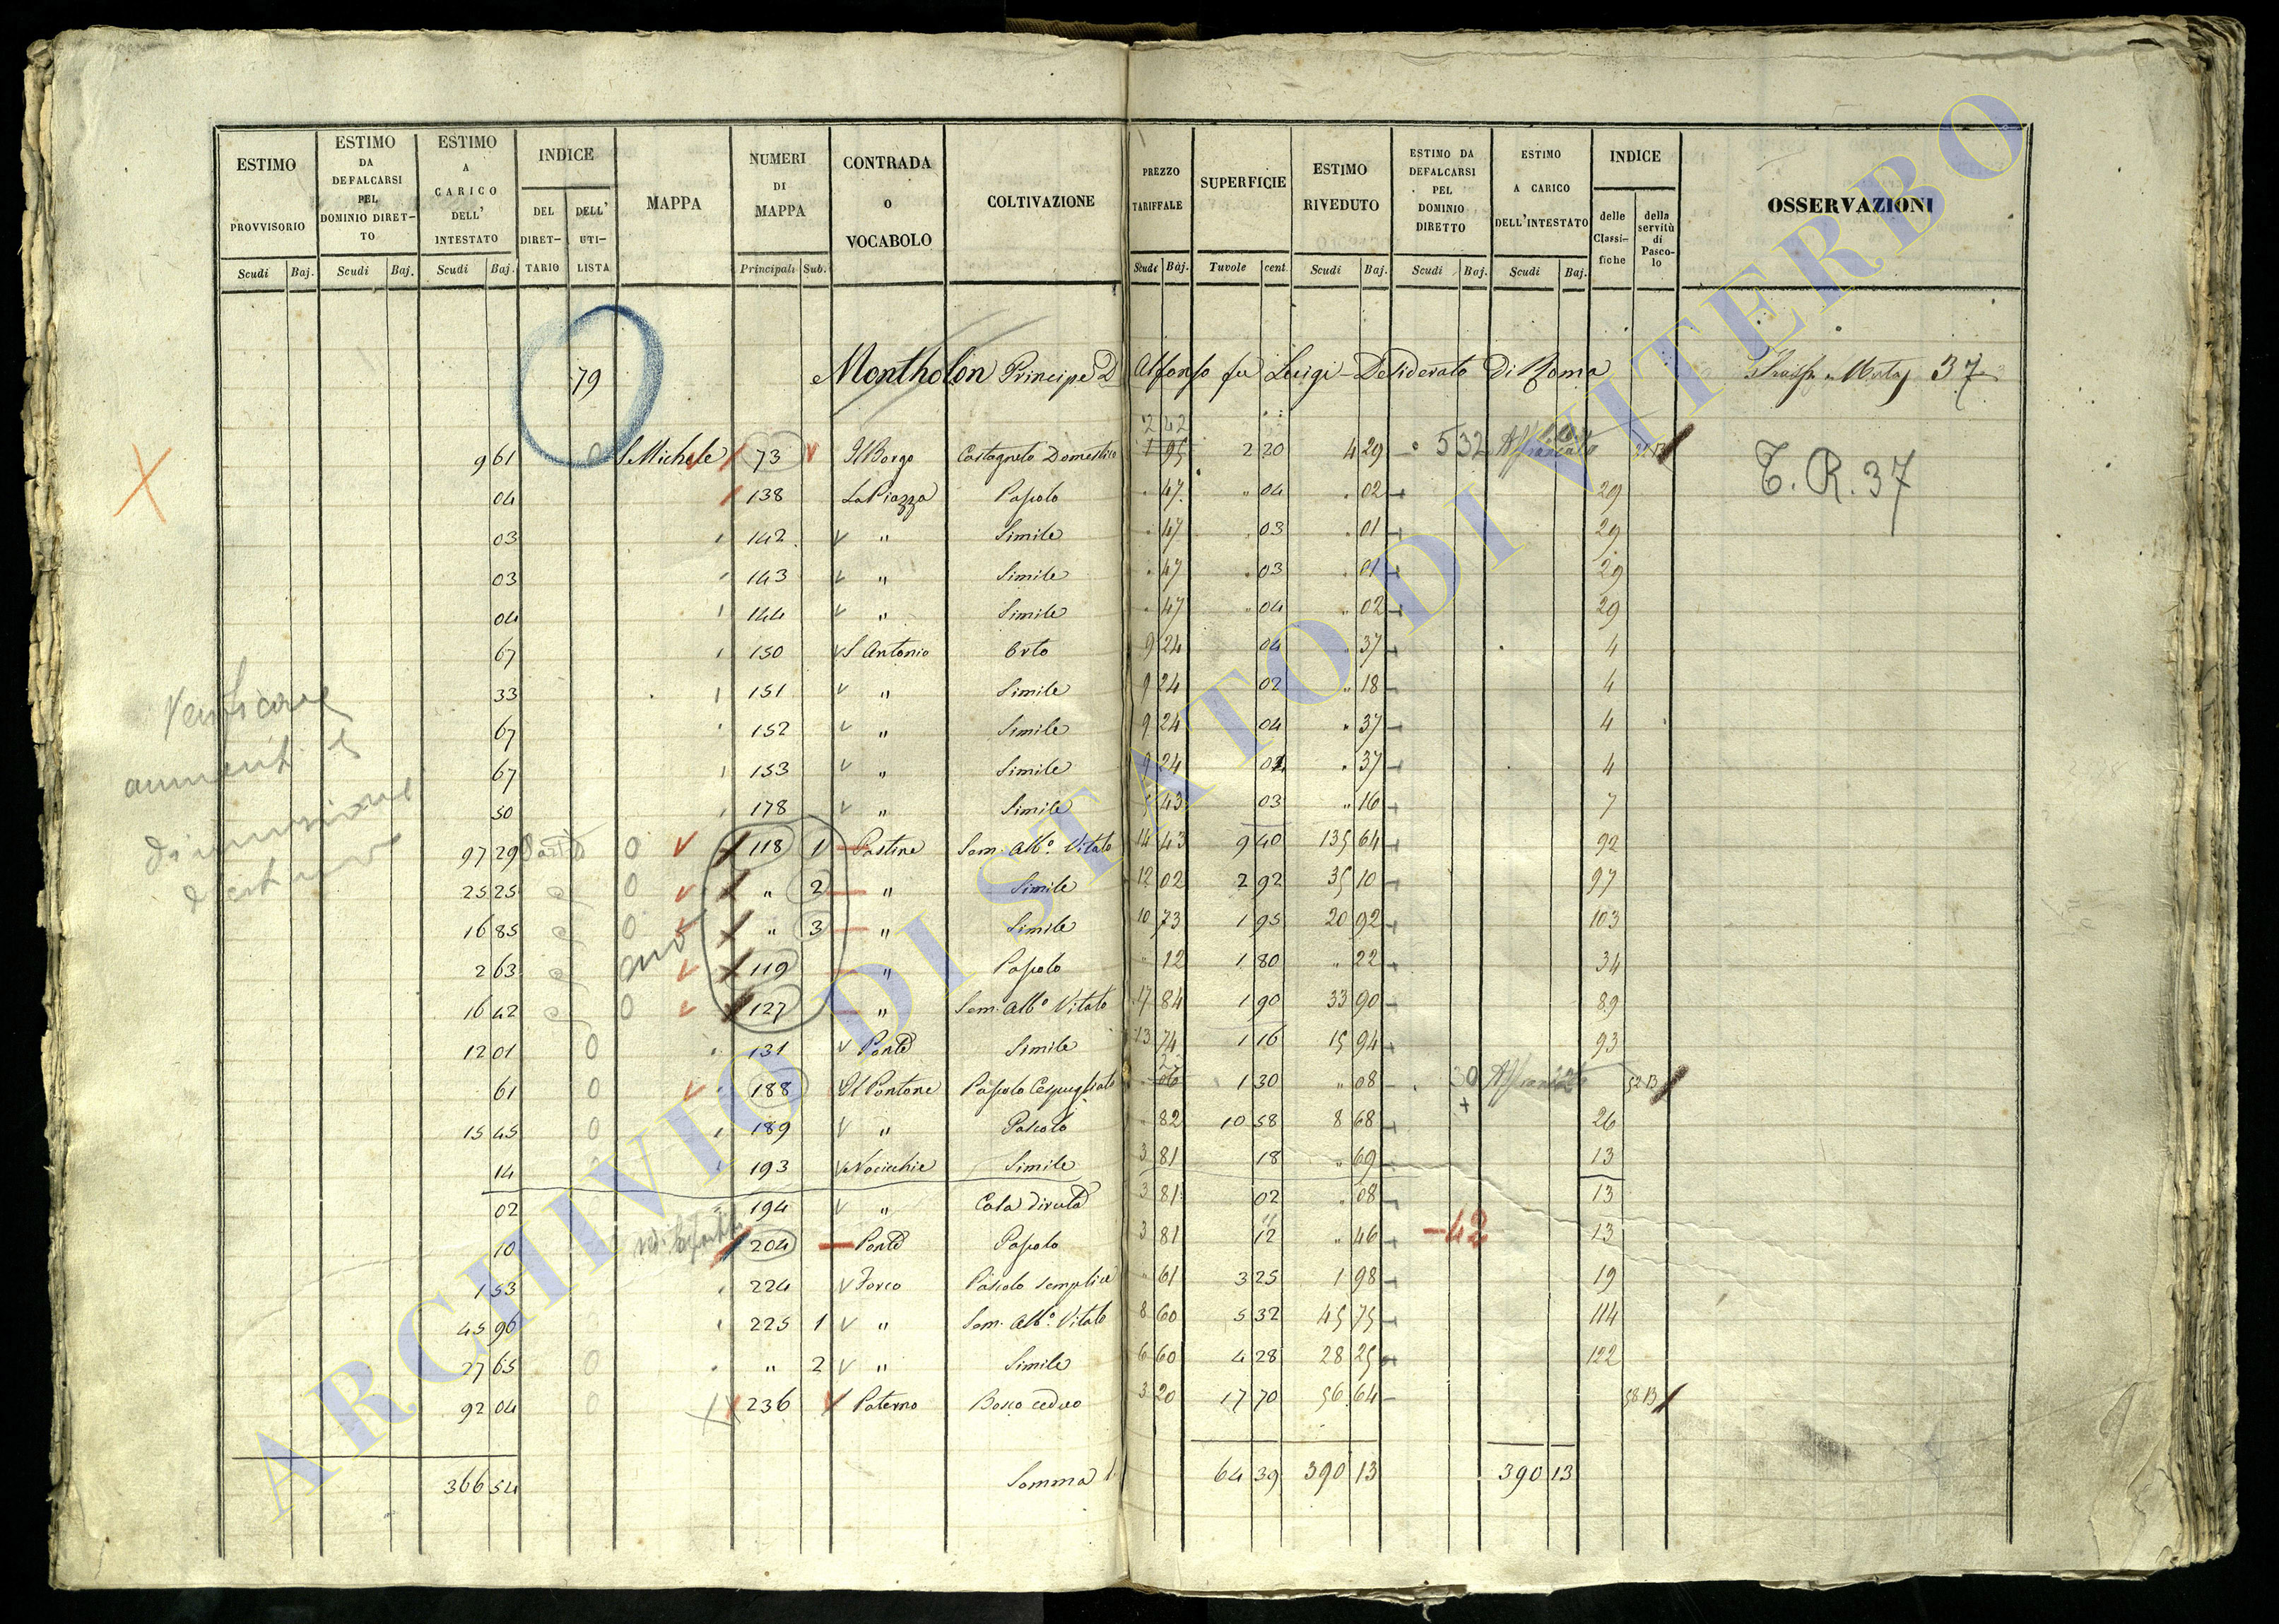 ESTIMO PROVVISORIO Scudi Baj. ESTIMO DA DEFALCARSI PEL DOMINIO DIRETTO Scudi Baj. ESTIMO A CARICO DELL' INTESTATO Scudi Baj. INDICE DEL DIRETTARIO DELL' UTILISTA MAPPA NUMERI DI MAPPA Principali Sub. CONTRADA o VOCABOLO COLTIVAZIONE PREZZO TARIFFALE Scudi Baj. SUPERFICIE Tavole cent. ESTIMO RIVEDUTO Scudi Baj. ESTIMO DA DEFALCARSI PEL DOMINIO DIRETTO Scudi Baj. ESTIMO A CARICO DELL'INTESTATO Scudi Baj. INDICE delle Classifiche della servitù di Pascolo OSSERVAZIONI
79 Montholon Principe D Alfonso fu Luigi Desiderato di Roma 37
2 42
9 61 S Michele 73 Il Borgo Castagneto Domestico 1 95 2 20 4 29 5 32 Affrancato
T. R. 37
04 138 La Piazza Pascolo 47 04 02 29
03 142 " Simile 47 03 01 29
03 143 " Simile 47 03 01 29
04 144 " Simile 47 04 02 29
67 150 S Antonio Orto 9 24 04 37 4
33 151 " Simile 9 24 02 18 4
67 152 " Simile 9 24 04 37 4
67 153 " Simile 9 24 04 37 4
50 178 " Simile 5 43 03 16 7
Verificare aumenti e diminuzione d'estimo
97 29 0 118 1 Pastine Sem. Alb.o Vitato 14 43 9 40 135 64 92
25 25 0 " 2 " Simile 12 02 2 92 35 10 97
16 85 0 " 3 " Simile 10 73 1 95 20 92 103
2 63 119 " Pascolo 12 1 80 22 34
16 42 0 127 " Sem. Alb.o Vitato 17 84 1 90 33 90 89
12 01 0 131 Ponte Simile 13 74 1 16 15 94 93
61 0 188 Il Pontone Pascolo Cespugliato 06 1 30 08 30 Affrancato
15 45 0 189 " Pascolo 82 10 58 8 68 26
14 193 Nocicchie Simile 3 81 18 69 13
02 194 " Casa diruta 3 81 02 08 13
10 204 Ponte Pascolo 3 81 12 46 -42 13
1 53 224 Forco Pascolo semplice 61 3 25 1 98 19
45 96 225 1 " Sem. Alb.o Vitato 8 60 5 32 45 75 114
27 65 0 " 2 " Simile 6 60 4 28 28 25 122
92 04 0 236 Paterno Bosco ceduo 3 20 17 70 56 64
366 54 Somma 64 39 390 13 390 13
ARCHIVIO DI STATO DI VITERBO